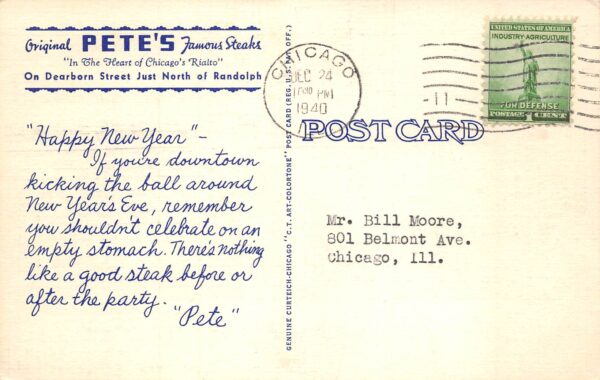 Original PETE'S Famous Steaks
"In The Heart of Chicago's Rialto"
On Dearborn Street Just North of Randolph
"Happy New Year" -
If you're downtown
kicking the ball around
New Year's Eve, remember
you shouldn't celebrate on an
empty stomach. There's nothing
like a good steak before or
after the party.
"Pete"
GENUINE CURTEICH-CHICAGO "C.T. ART-COLORTONE" POST CARD (REG. U.S. PAT. OFF.)
CHICAGO
DEC 24
PM
1940
11
UNITED STATES OF AMERICA
INDUSTRY AGRICULTURE
FOR DEFENSE
POSTAGE 1 CENT
POST CARD
Mr. Bill Moore,
801 Belmont Ave.
Chicago, Ill.